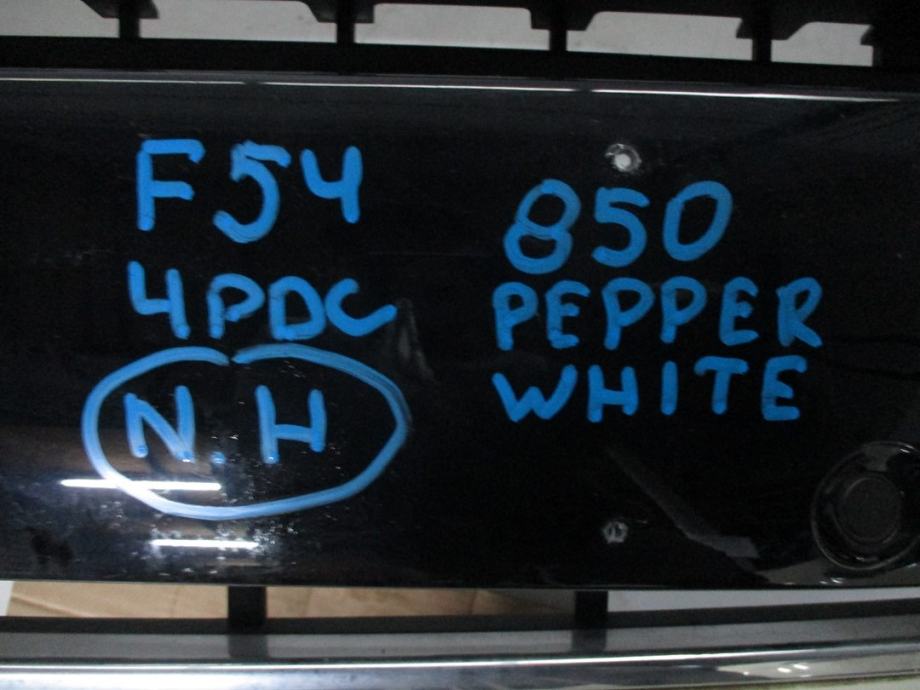 F54
4PDC
N.H
850
PEPPER
WHITE